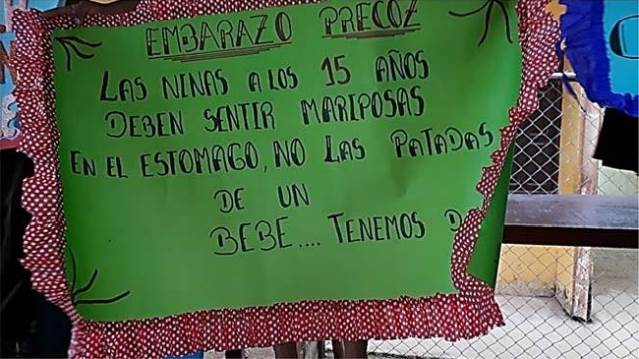 EMBARAZO PRECOZ
LAS NINAS A LOS 15 AÑOS
DEBEN SENTIR MARIPOSAS
EN EL ESTOMAGO, NO LAS PATADAS
DE UN
BEBE.... TENEMOS D